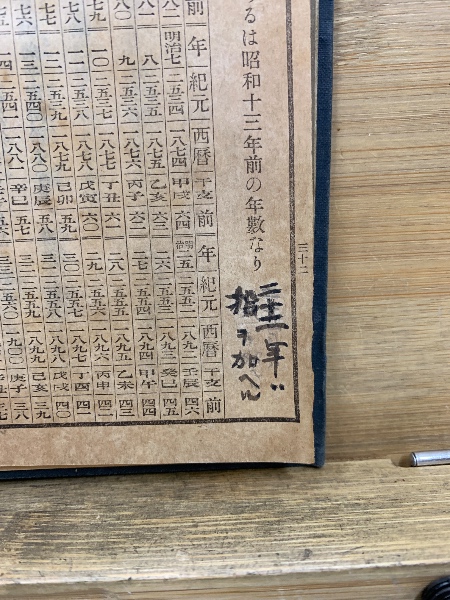 三十二
るは昭和十三年前の年數なり
二十二年ハ
拾ヲ加ヘル
前 年 紀元 西暦 干支 前 年 紀元 西暦 干支 前
八二 明治七 二五三四 一八七四 甲戌 六四 明治二五 二五五二 一八九二 壬辰 四六
八一 八 二五三五 一八七五 乙亥 六三 二六 二五五三 一八九三 癸巳 四五
八〇 九 二五三六 一八七六 丙子 六二 二七 二五五四 一八九四 甲午 四四
七九 一〇 二五三七 一八七七 丁丑 六一 二八 二五五五 一八九五 乙未 四三
七八 一一 二五三八 一八七八 戊寅 六〇 二九 二五五六 一八九六 丙申 四二
七七 一二 二五三九 一八七九 己卯 五九 三〇 二五五七 一八九七 丁酉 四一
七六 一三 二五四〇 一八八〇 庚辰 五八 三一 二五五八 一八九八 戊戌 四〇
一四 二五四一 一八八一 辛巳 五七 三二 二五五九 一八九九 己亥 三九
二五六〇 一九〇〇 庚子 三八